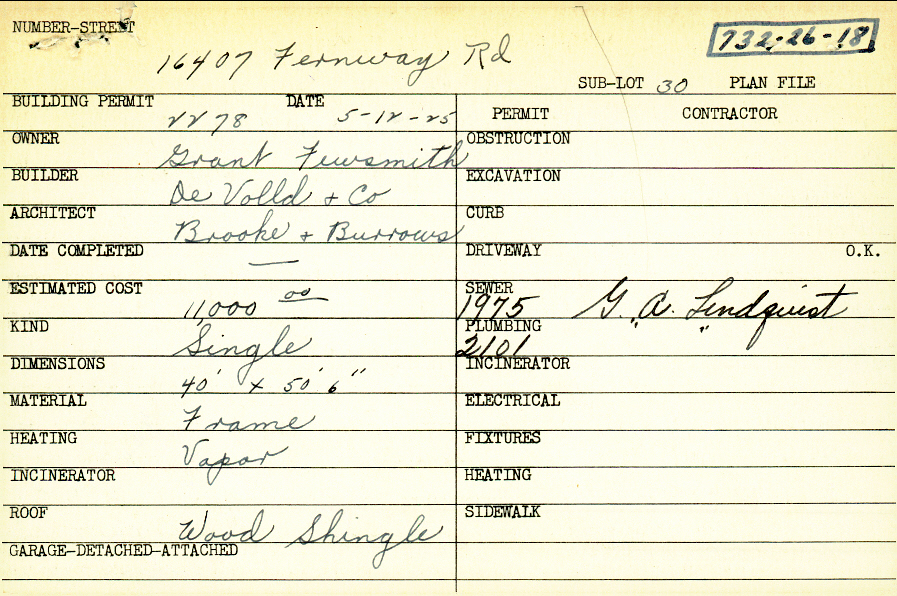 NUMBER-STREET
732-26-18
16407 Fernway Rd
SUB-LOT 30 PLAN FILE
BUILDING PERMIT DATE PERMIT CONTRACTOR
2278 5-12-25
OWNER Grant Fewsmith OBSTRUCTION
BUILDER De Volld + Co EXCAVATION
ARCHITECT Brooke + Burrows CURB
DATE COMPLETED — DRIVEWAY O.K.
ESTIMATED COST 11,000 00 SEWER 1975 G. A. Lindquist
KIND Single PLUMBING 2101 " "
DIMENSIONS 40' x 50' 6" INCINERATOR
MATERIAL Frame ELECTRICAL
HEATING Vapor FIXTURES
INCINERATOR HEATING
ROOF Wood Shingle SIDEWALK
GARAGE-DETACHED-ATTACHED